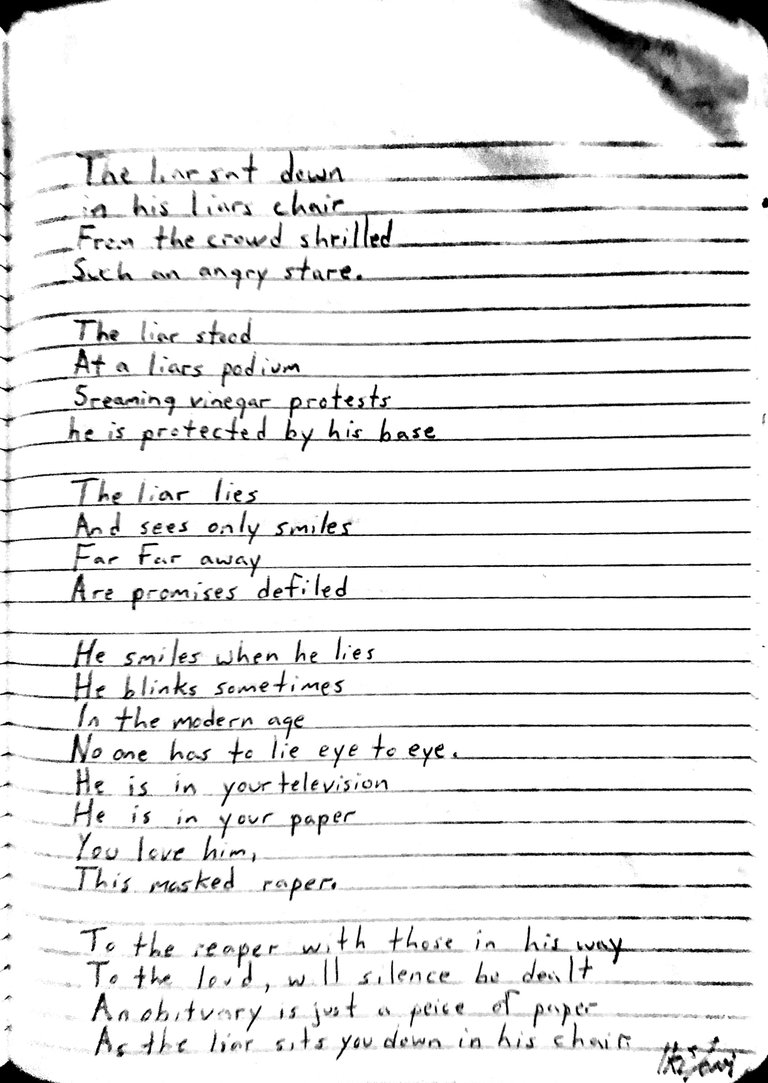 The liar sat down
in his liars chair
From the crowd shrilled
Such an angry stare.
The liar stood
At a liars podium
Sreaming vinegar protests
he is protected by his base
The liar lies
And sees only smiles
Far Far away
Are promises defiled
He smiles when he lies
He blinks sometimes
In the modern age
No one has to lie eye to eye.
He is in your television
He is in your paper
You love him,
This masked raper.
To the reaper with those in his way
To the loud, will silence be dealt
An obituary is just a peice of paper
As the liar sits you down in his chair